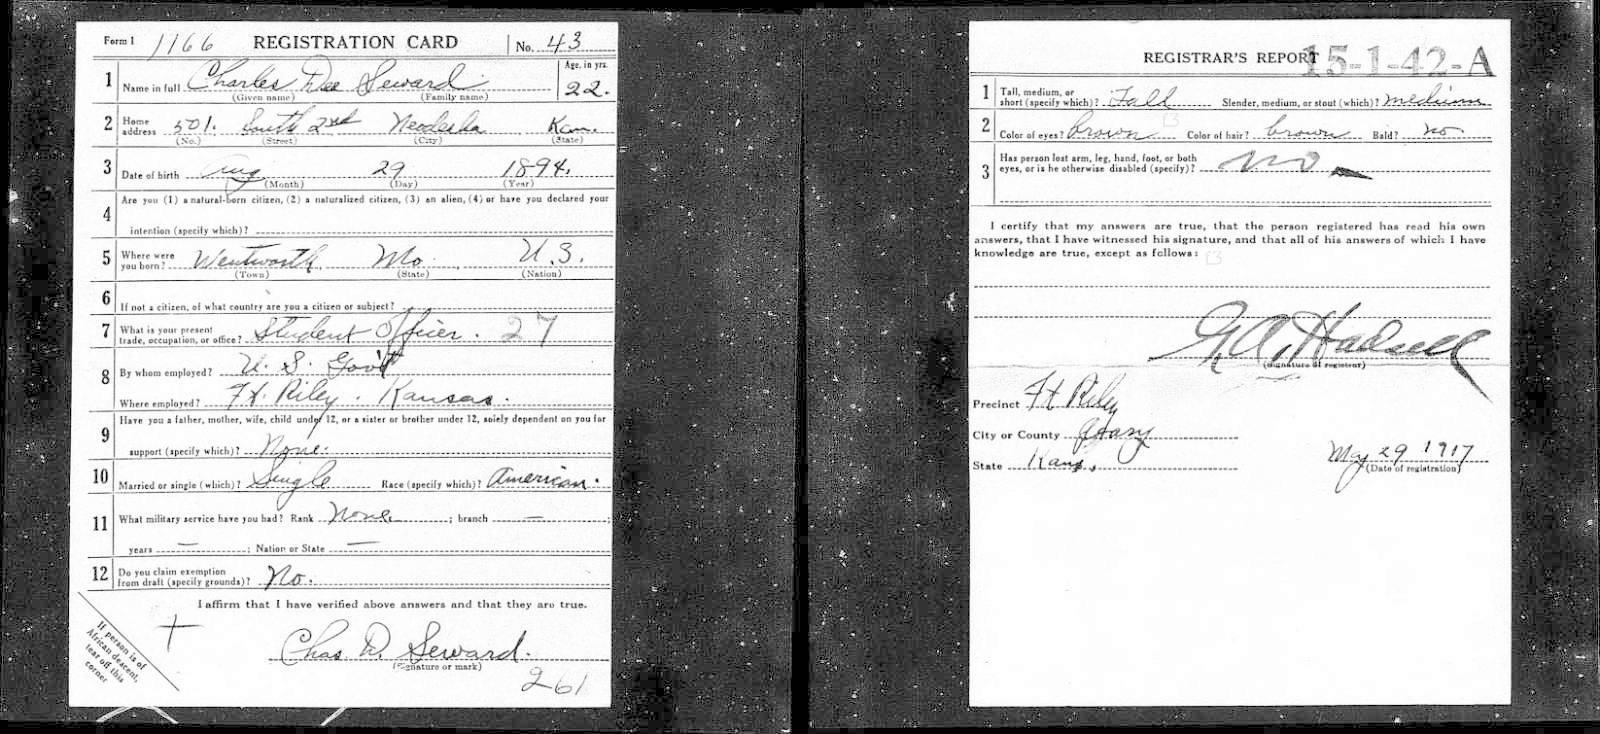 Form 1 1166 REGISTRATION CARD No. 43
1 Name in full Charles Dee Seward Age, in yrs. 22.
(Given name) (Family name)
2 Home address 501. South 2nd Neodesha Kan.
(No.) (Street) (City) (State)
3 Date of birth Aug 29 1894.
(Month) (Day) (Year)
4 Are you (1) a natural-born citizen, (2) a naturalized citizen, (3) an alien, (4) or have you declared your
intention (specify which)?
5 Where were you born? Wentworth Mo. U.S.
(Town) (State) (Nation)
6 If not a citizen, of what country are you a citizen or subject?
7 What is your present trade, occupation, or office? Student Officer. 27
8 By whom employed? U. S. Gov't
Where employed? Ft. Riley. Kansas.
9 Have you a father, mother, wife, child under 12, or a sister or brother under 12, solely dependent on you for
support (specify which)? None.
10 Married or single (which)? Single Race (specify which)? American.
11 What military service have you had? Rank None ; branch — ;
years — ; Nation or State —
12 Do you claim exemption from draft (specify grounds)? No.
I affirm that I have verified above answers and that they are true.
If person is of
African descent,
tear off this
corner
Chas. D. Seward.
(Signature or mark)
261
REGISTRAR'S REPORT 15-1-42-A
1 Tall, medium, or short (specify which)? Tall Slender, medium, or stout (which)? medium
2 Color of eyes? brown Color of hair? brown Bald? no
3 Has person lost arm, leg, hand, foot, or both
eyes, or is he otherwise disabled (specify)? no
I certify that my answers are true, that the person registered has read his own
answers, that I have witnessed his signature, and that all of his answers of which I have
knowledge are true, except as follows:
G. A. Hadsell
(Signature of registrar)
Precinct Ft Riley
City or County Geary
State Kans.
May 29 1917
(Date of registration)